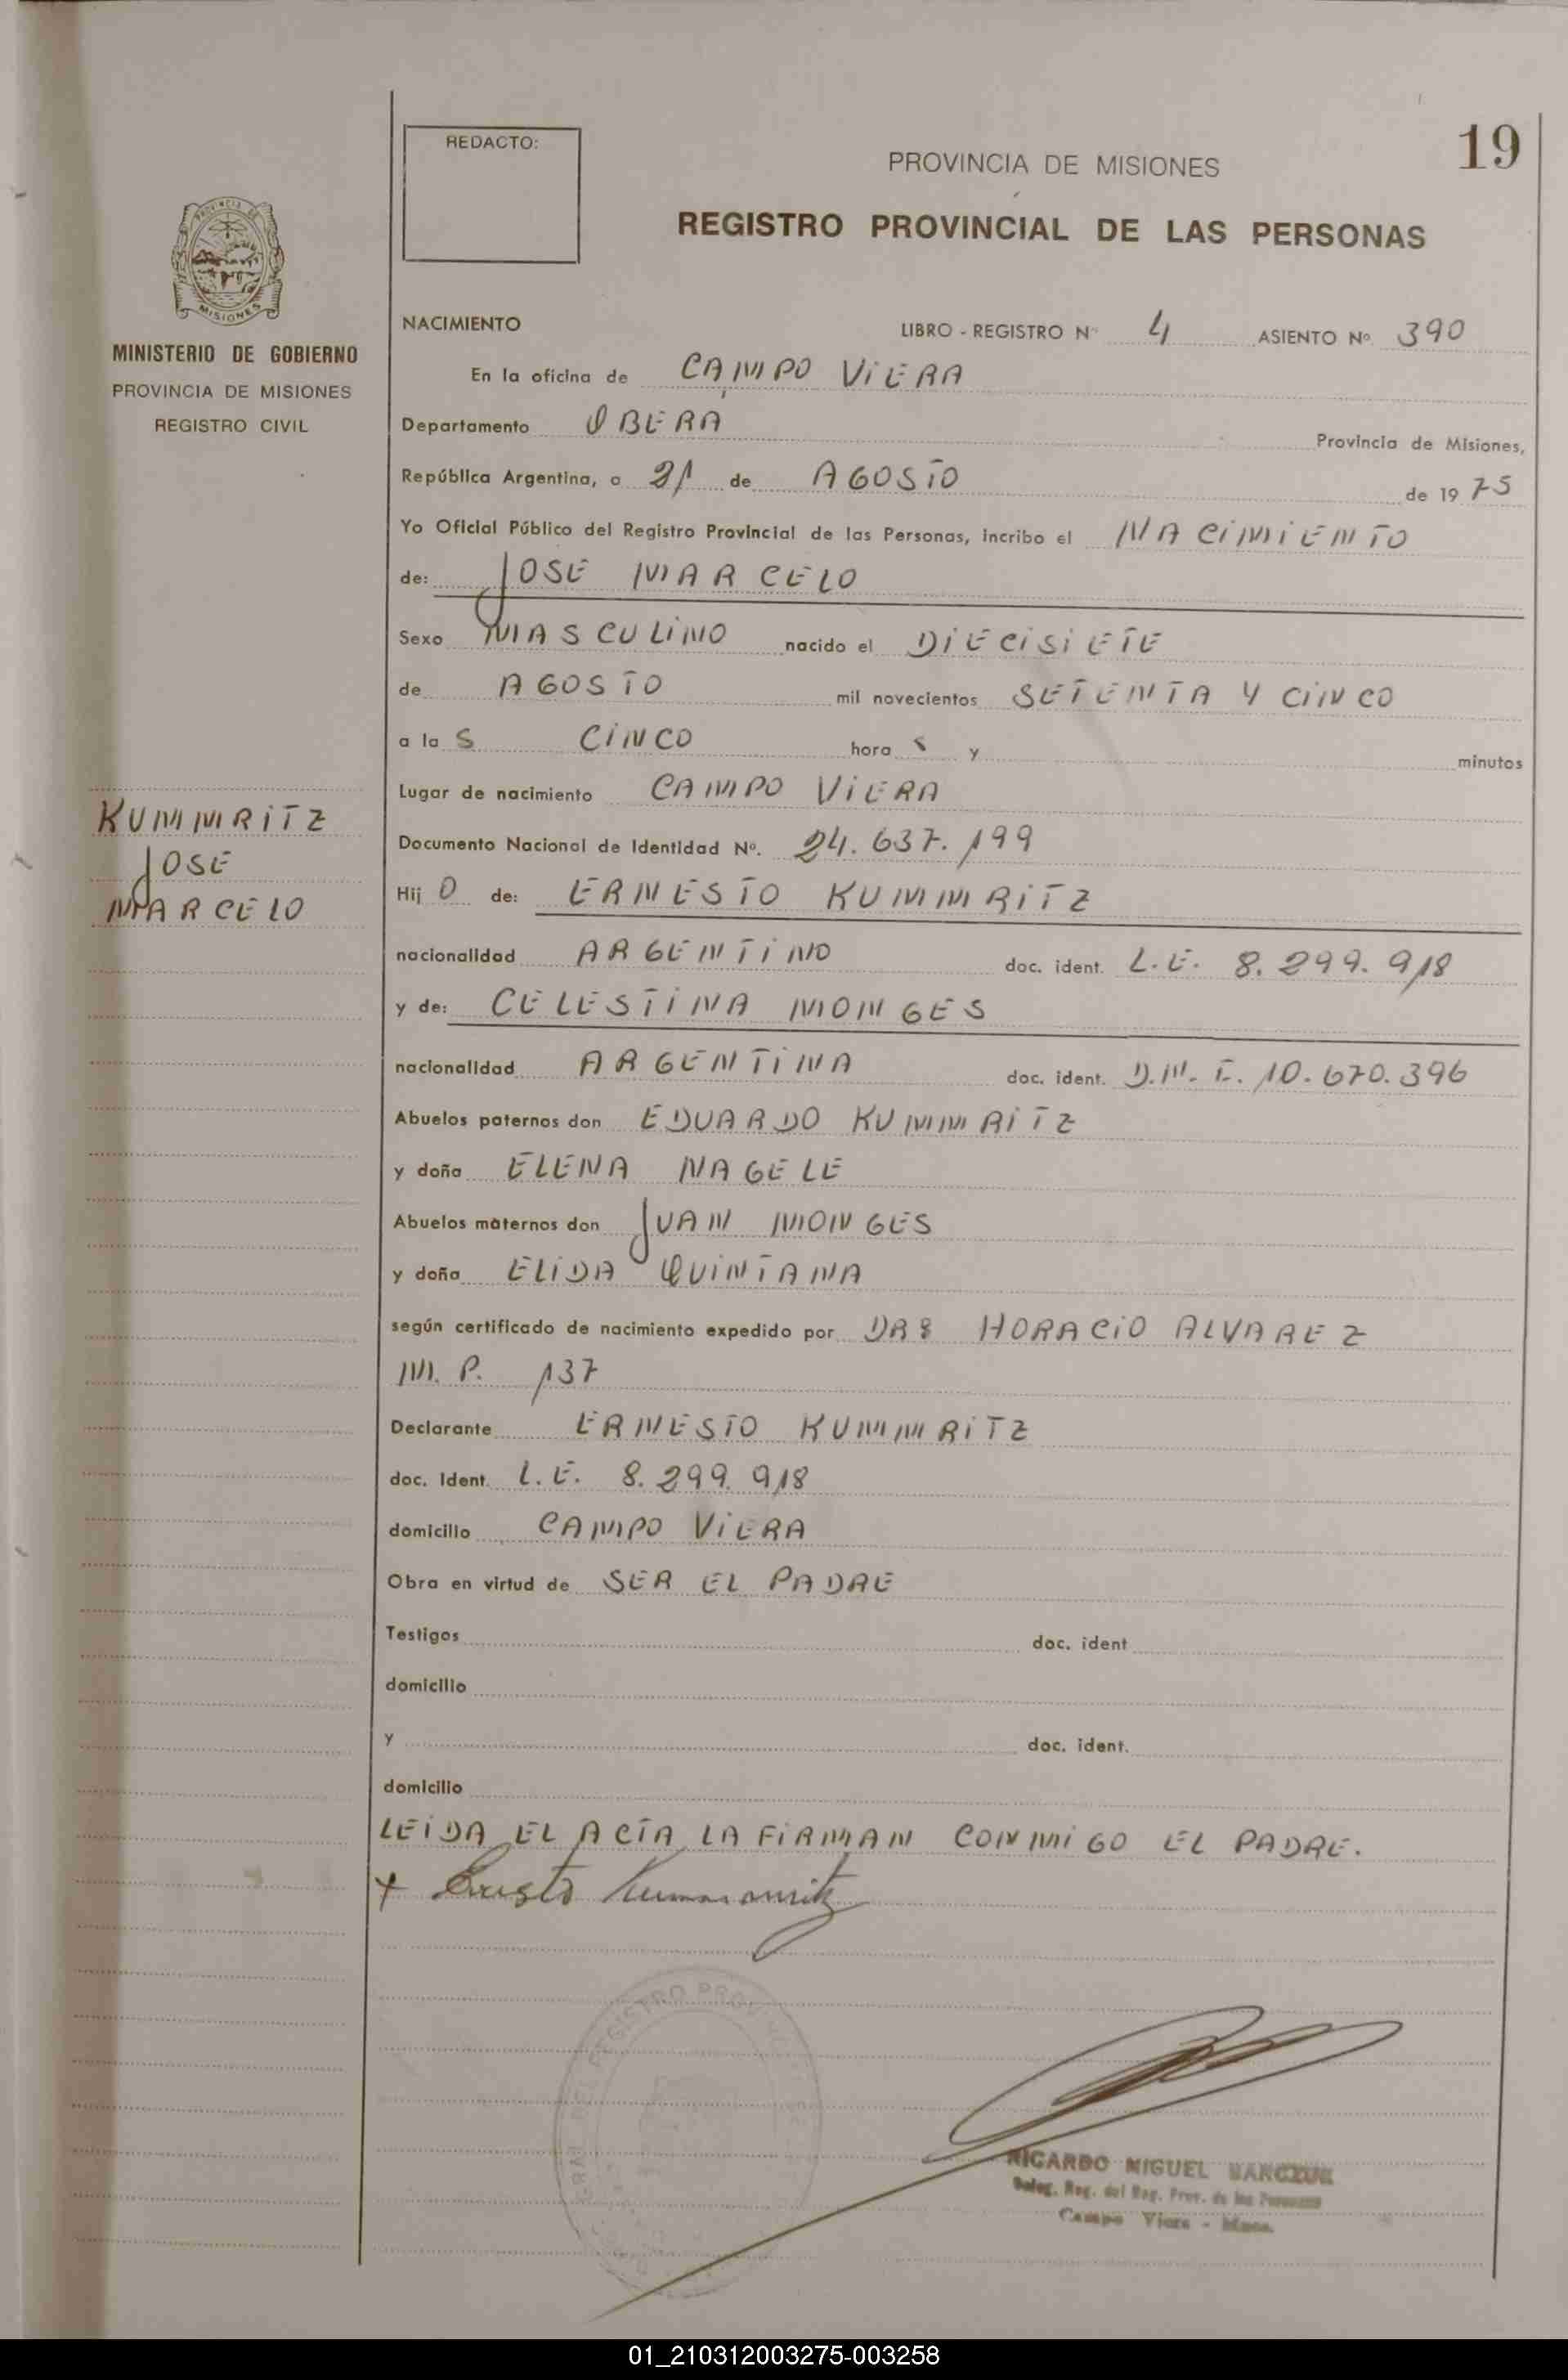 REDACTO:
PROVINCIA DE MISIONES
19
REGISTRO PROVINCIAL DE LAS PERSONAS
PROVINCIA DE
MISIONES
MINISTERIO DE GOBIERNO
PROVINCIA DE MISIONES
REGISTRO CIVIL
NACIMIENTO LIBRO - REGISTRO Nº 4 ASIENTO Nº. 390
En la oficina de CAMPO ViERA
Departamento OBERA Provincia de Misiones,
República Argentina, a 21 de AGOSTO de 19 75
Yo Oficial Público del Registro Provincial de las Personas, incribo el NACiMiENTO
de: JOSE MARCELO
Sexo MASCULiNO nacido el DiECiSiETE
de AGOSTO mil novecientos SETENTA Y CiNCO
a la S CiNCO hora s y minutos
Lugar de nacimiento CAMPO ViERA
Documento Nacional de Identidad Nº. 24.637.199
Hij O de: ERNESTO KUMMRiTZ
nacionalidad ARGENTiNO doc. ident. L.E. 8.299.918
y de: CELESTiNA MONGES
nacionalidad ARGENTiNA doc. ident. D.N.I. 10.670.396
Abuelos paternos don EDUARDO KUMMRiTZ
y doña ELENA NAGELE
Abuelos maternos don JUAN MONGES
y doña ELiDA QUiNTANA
según certificado de nacimiento expedido por DR: HORACiO ALVAREZ
M. P. 137
Declarante ERNESTO KUMMRiTZ
doc. Ident. L.E. 8.299.918
domicilio CAMPO ViERA
Obra en virtud de SER EL PADRE
Testigos doc. ident
domicilio
y doc. ident.
domicilio
LEiDA EL ACTA LA FiRMAN CONMiGO EL PADRE.
KUMMRiTZ
JOSE
MARCELO
RICARDO MIGUEL
Deleg. Reg. del Reg. Prov. de las Personas
Campo Viera - Mnes.
01_210312003275-003258